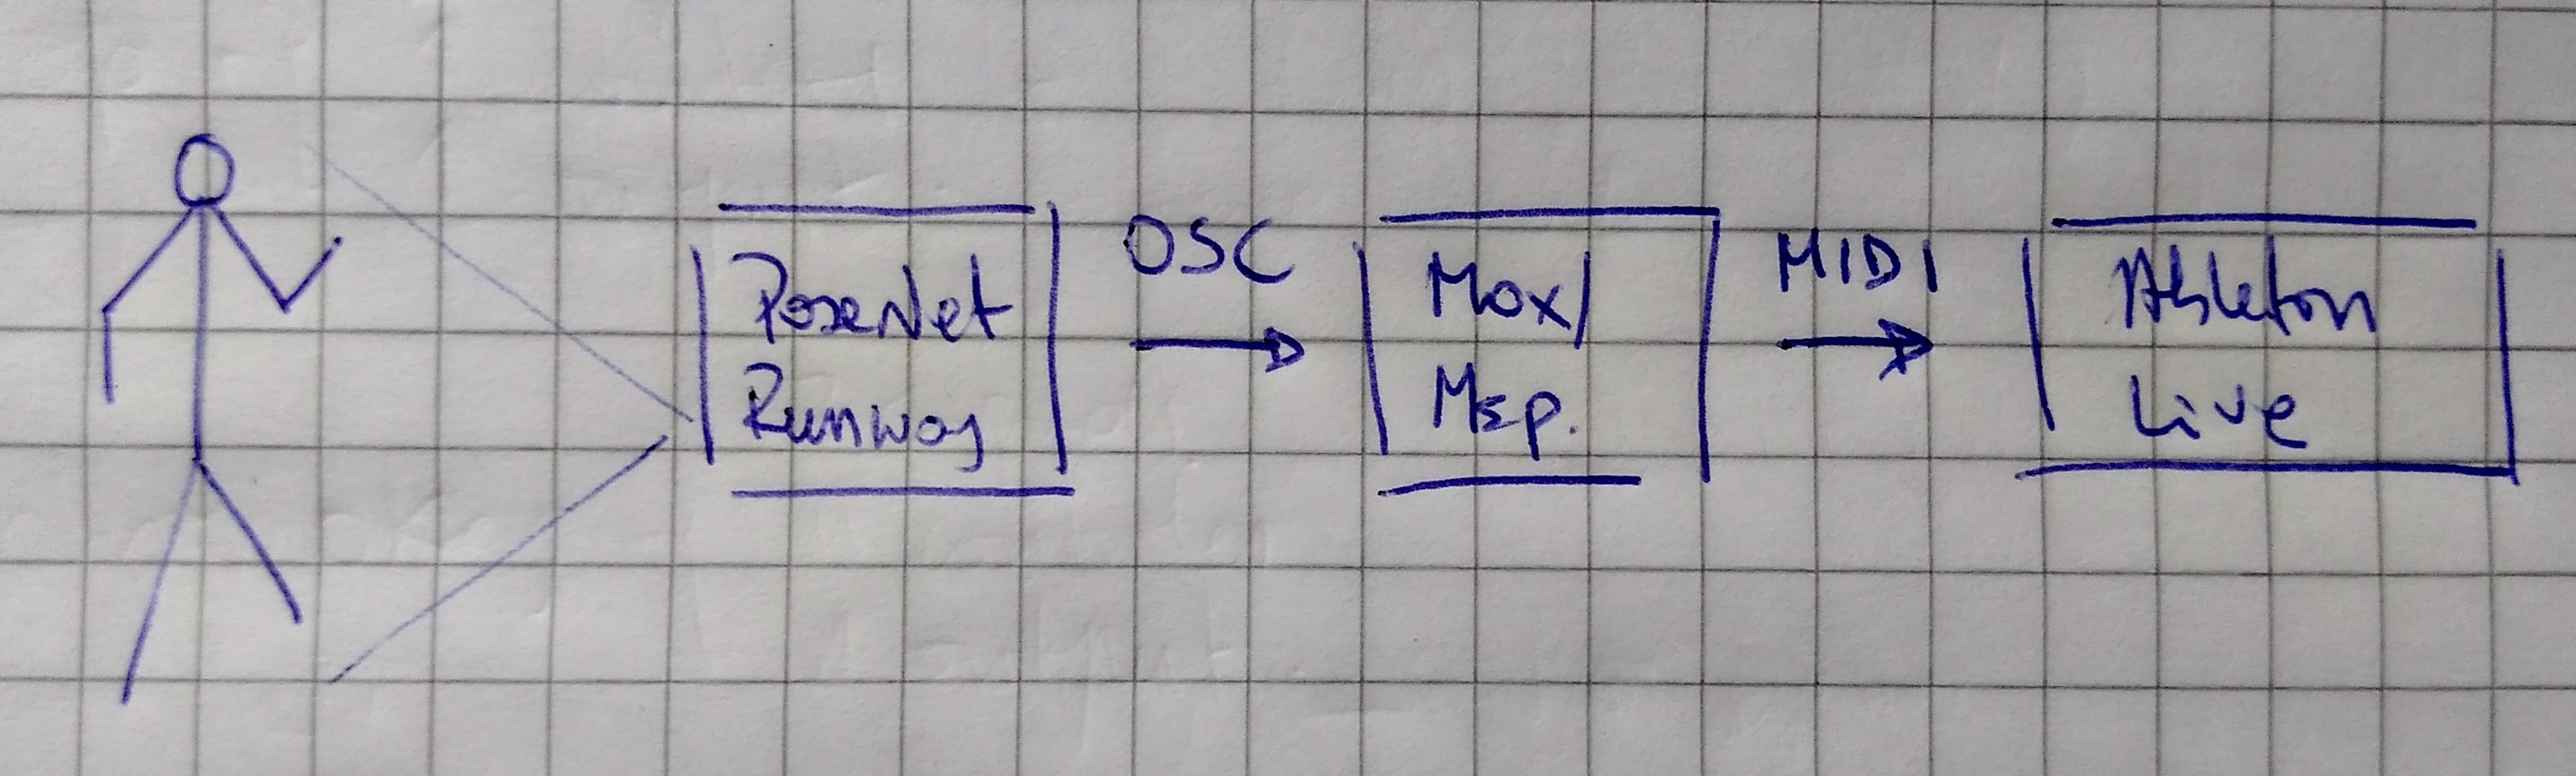 PoseNet
Runway
OSC
Max/
Msp.
MIDI
Ableton
Live